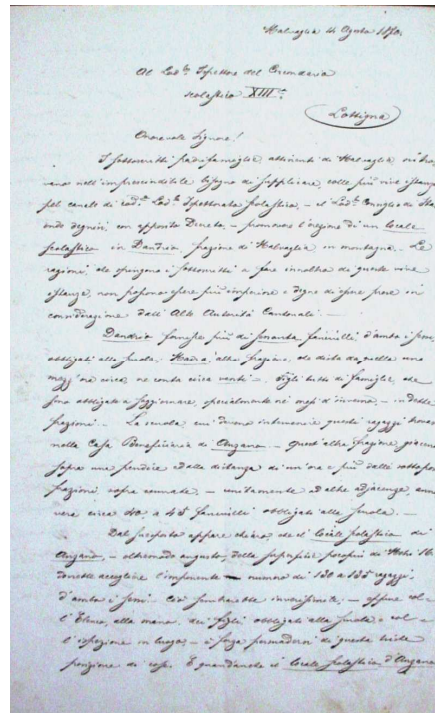 Malvaglia 14 Agosto 1870.
Al Lod.le Ispettore del Circondario
scolastico XIII.o
Lottigna
Onorevole Signore!
I sottoscritti padrifamiglia attinenti di Malvaglia si tro-
vano nell'imprescindibile bisogno di supplicare, colle più vive istanze
pel canale di cod.o Lod.o Ispettorato scolastico, - il Lod.o Consiglio di Sta-
to onde degnisi, con apposito Decreto, - promovere l'erezione di un locale
scolastico in Dandrio frazione di Malvaglia in montagna. - Le
ragioni che spingono i sottoscritti a fare inoltro di queste vive
istanze, non possono essere più imperiose e degne di essere prese in
considerazione dall'Alte Autorità Cantonali. -
Dandrio fornisce più di sessanta fanciulli d'ambo i sessi
obbligati alla scuola. altra frazione, che dista da quella una
mezz'ora circa, ne conta circa venti - figli tutti di famiglie, che
sono obbligate a soggiornare, specialmente nei mesi d'inverno, - in dette
frazioni. - La scuola, cui devono intervenire questi ragazzi trovasi
nella Casa Beneficiaria di Anzano. - Quest'altra frazione giacente
sopra una pendice e alla distanza di un'ora e più dalle sottoposte
frazioni sopra nomate, - unitamente ad altre adjacenze, anno-
vera circa 40 a 45 fanciulli obbligati alla scuola. -
Dal suesposto appare chiaro che il locale scolastico di
Anzano, - oltremodo angusto, della superficie di Metri 16
dovrebbe accogliere l'imponente numero di 130 a 135 ragazzi
d'ambo i sessi. Ciò sembrerebbe inverosimile, - eppure col-
l'Elenco, alla mano, dei figli obbligati alla scuola e col-
l'ispezione in luogo, - è forza persuadersi di questa triste
posizione di cose. E quand'anche il locale scolastico d'Anzano